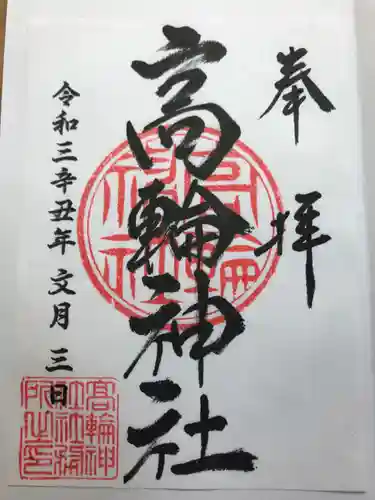 奉拝
高輪神社
令和三辛丑年 文月 三日
高輪神
社社務
所之印